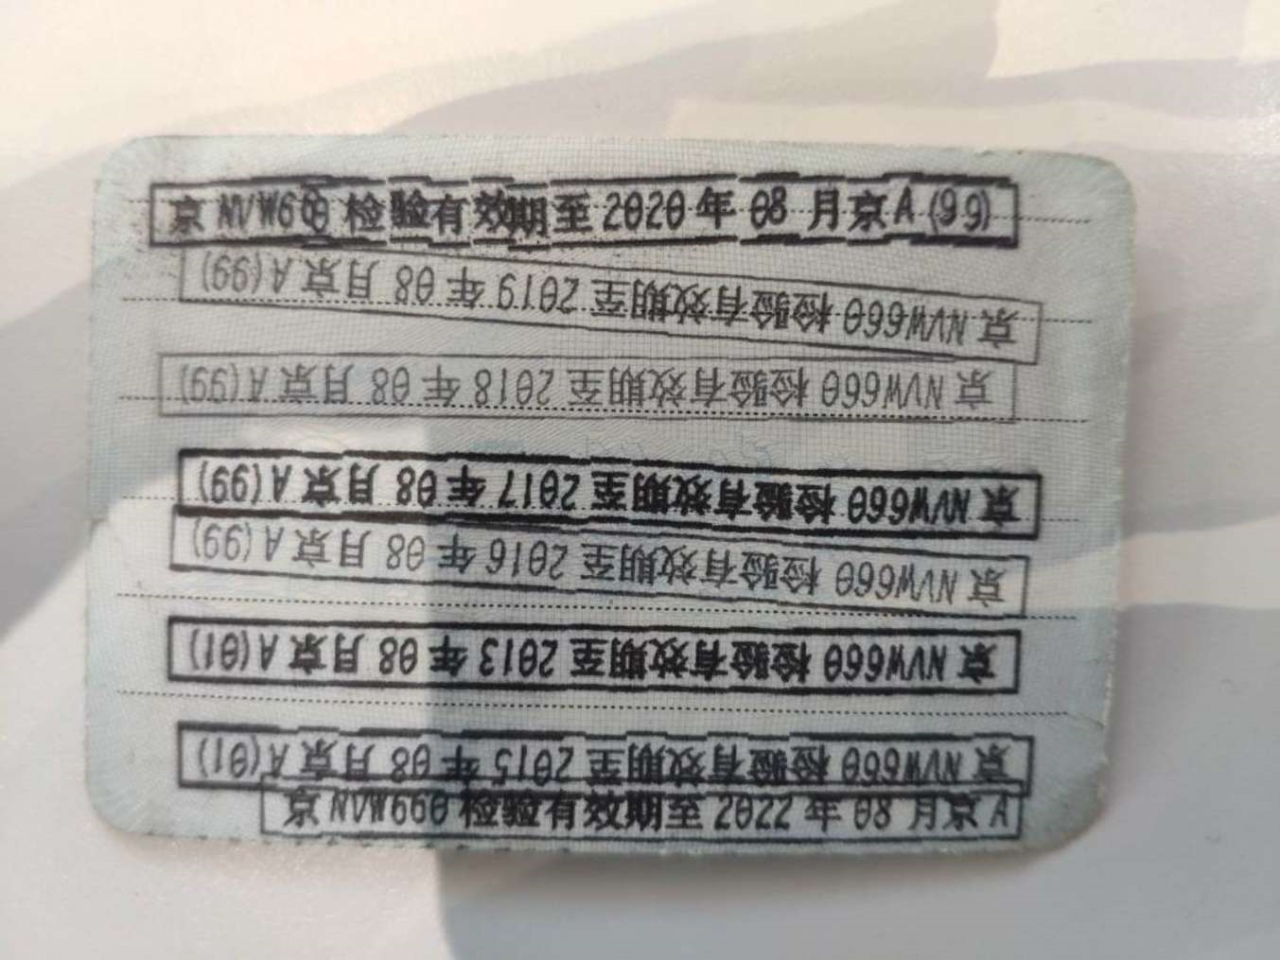 京 NVW660 检验有效期至 2020 年 08 月京 A (99)
京 NVW660 检验有效期至 2019 年 08 月京 A (99)
京 NVW660 检验有效期至 2018 年 08 月京 A (99)
京 NVW660 检验有效期至 2017 年 08 月京 A (99)
京 NVW660 检验有效期至 2016 年 08 月京 A (99)
京 NVW660 检验有效期至 2013 年 08 月京 A (01)
京 NVW660 检验有效期至 2015 年 08 月京 A (01)
京 NVW660 检验有效期至 2022 年 08 月京 A